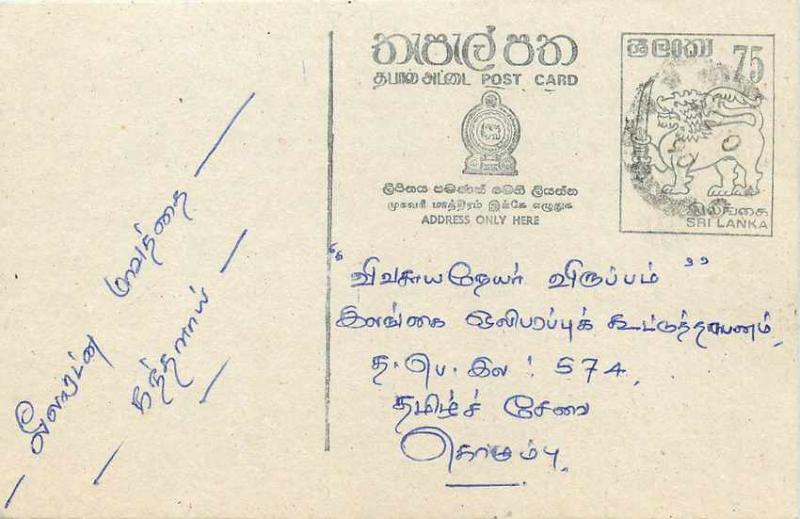 තැපැල් පත
தபால் அட்டை POST CARD
ලිපිනය පමණක් මෙහි ලියන්න
முகவரி மாத்திரம் இங்கே எழுதுக
ADDRESS ONLY HERE
ශ්‍රී ලංකා 75
இலங்கை
SRI LANKA
"விவசாயநேயர் விருப்பம்"
இலங்கை ஒலிபரப்புக் கூட்டுத்தாபனம்,
த. பெ. இல : 574,
தமிழ்ச் சேவை
கொழும்பு.
மாவத்தை
கந்தளாய்